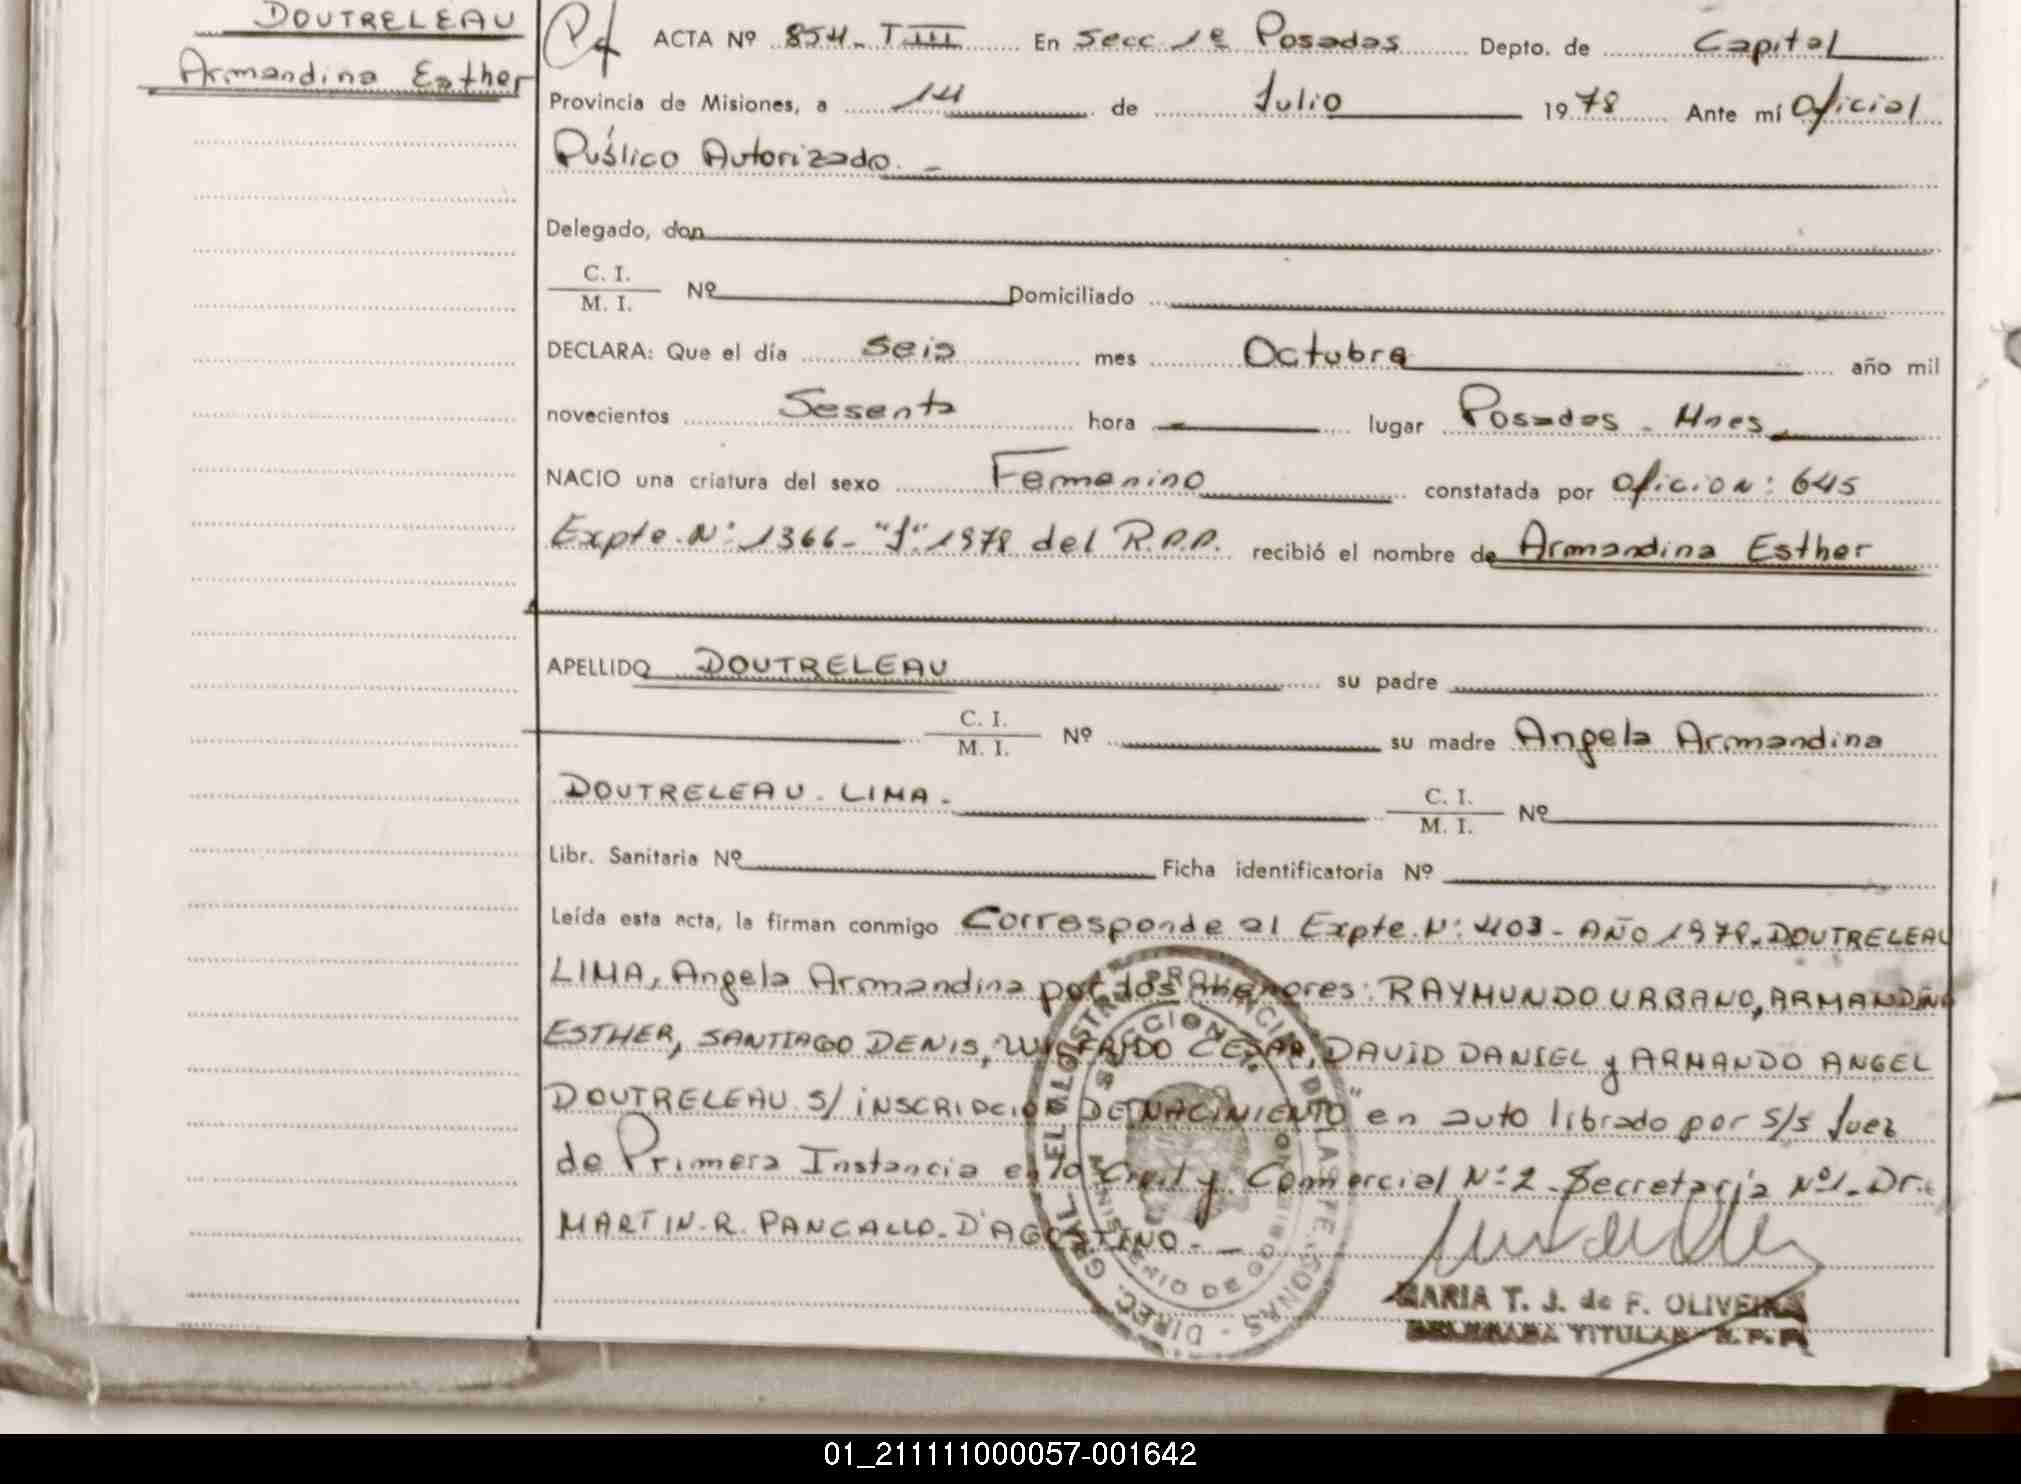 DOUTRELEAU
Armandina Esther
ACTA Nº 854- TIII En Secc. 1º Posadas Depto. de Capital
Provincia de Misiones, a 14 de Julio 1978 Ante mí Oficial
Público Autorizado. -
Delegado, don
C. I.
M. I. Nº Domiciliado
DECLARA: Que el día Seis mes Octubre año mil
novecientos Sesenta hora lugar Posadas - Mnes
NACIO una criatura del sexo Femenino constatada por Oficio N: 645
Expte. Nº: 1366- "J" 1978 del R.P.P. recibió el nombre de Armandina Esther
APELLIDO DOUTRELEAU su padre
C. I.
M. I. Nº su madre Angela Armandina
DOUTRELEAU - LIMA - C. I.
M. I. Nº
Libr. Sanitaria Nº Ficha identificatoria Nº
Leída esta acta, la firman conmigo Corresponde al Expte. Nº: 403 - AÑO 1978. DOUTRELEAU
LIMA, Angela Armandina por los menores: RAYMUNDO URBANO, ARMANDINA
ESTHER, SANTIAGO DENIS, WILFRIDO CESAR, DAVID DANIEL y ARMANDO ANGEL
DOUTRELEAU S/ INSCRIPCION DE NACIMIENTO" en auto librado por S/S Juez
de Primera Instancia en lo Civil y Comercial Nº 2 - Secretaría Nº 1 - Dr.
MARTIN - R. PANCALLO - D'AGOSTINO. -
MARIA T. J. de F. OLIVEIRA
DELEGADA TITULAR R. P. P.
01_211111000057-001642